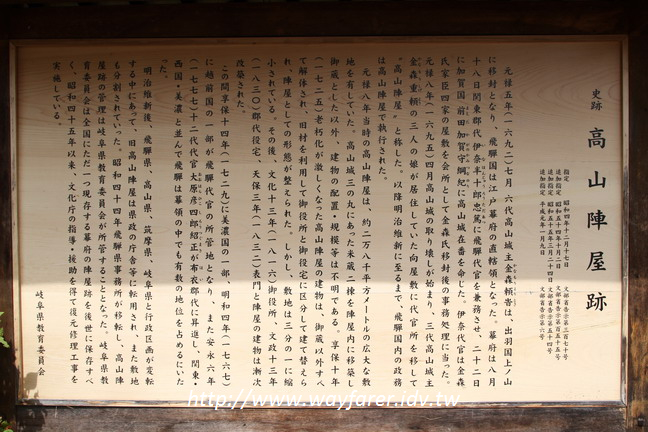 史跡 高山陣屋跡
指定 昭和四年十二月十七日 文部省告示第三百七十号
追加指定 昭和五十五年三月二十四日 文部省告示第五十四号
追加指定 平成元年一月九日 文部省告示第六号
元禄五年(一六九二)七月 六代高山城主金森頼旹は、出羽国上ノ山
に移封となり、飛騨国は江戸幕府の直轄領となった。幕府は八月
十八日関東郡代 伊奈半十郎忠篤に飛騨代官を兼務させ、二十二日
に加賀国 前田加賀守綱紀に高山城在番を命じた。伊奈代官は金森
氏家臣四家の屋敷を会所として金森氏移封後の事務処理に当った。
元禄八年(一六九五)四月高山城の取り壊しが始まり、三代高山城主
金森重頼の三人の娘が居住していた向屋敷に代官所を移して
"高山陣屋"と称した。以降明治維新に至るまで、飛騨国内の政務
は高山陣屋で執行された。
元禄八年当時の高山陣屋は、約二万八千平方メートルの広大な敷
地を有していた。高山城三の丸にあった米蔵二棟を陣屋内に移築し
御蔵とした以外、建物の配置・規模等は不明である。享保十年
(一七二五)老朽化が激しくなった高山陣屋の建物は、御蔵以外すべ
て解体され、旧材を利用して御役所と御役宅に区分して建て替えら
れ、陣屋としての形態が整えられた。しかし、敷地は三分の一に縮
小されている。その後、文化十三年(一八一六)御役所、文政十三年
(一八三〇)郡代役宅、天保三年(一八三二)表門と陣屋の建物は漸次
改築された。
この間享保十四年(一七二九)に美濃国の一部、明和四年(一七六七)
に越前国の一部が飛騨代官の所管地となり、また安永六年
(一七七七)十二代代官大原彦四郎紹正が布衣郡代に昇進し、関東・
西国・美濃と並んで飛騨は幕領の中でも有数の地位を占めるにいた
った。
明治維新後、飛騨県、高山県、筑摩県、岐阜県と行政区画が変転
する中にあって、旧高山陣屋は県政の庁舎等に転用され、また敷地
も分割されていった。昭和四十四年飛騨県事務所が移転し、高山陣
屋跡の管理は岐阜県教育委員会が所管することとなった。岐阜県教
育委員会は全国にただ一つ現存する幕府の陣屋跡を後世に保存すべ
く、昭和四十五年以来、文化庁の指導・援助を得て復元修理工事を
実施している。
岐阜県教育委員会
http://www.wayfarer.idv.tw